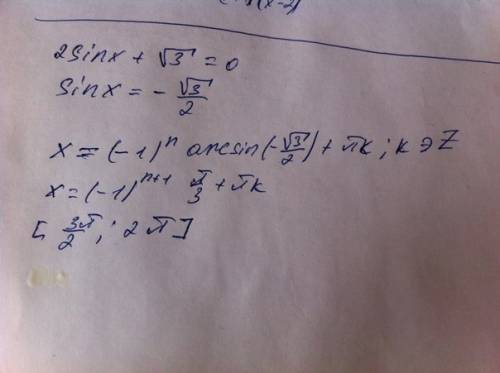 2sinx + √3 = 0
sinx = - √3/2
x = (-1)^n arcsin(-√3/2) + πk ; k э Z
x = (-1)^{n+1} π/3 + πk
[ 3π/2 ; 2π ]